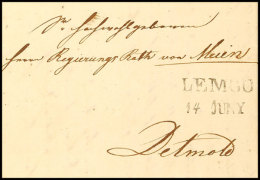 Sr Hochwohlgeboren
Herrn Regierungs Rath von Meien
LEMGO
14 JUNY
Detmold